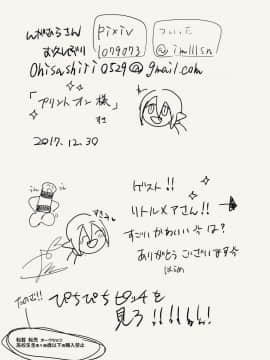 んがあらさん
お久しぶり
pixiv
1079073
ついった
@imlllsn
Ohisashiri0529@gmail.com
「プリントオン様」
2017.12.30
ゲスト!!
リトルメアさん!!
すごいかわいい
ありがとうございます
たのむ!!
ぴちぴちピッチを
見ろ!!!!!!
転載 転売 オークション